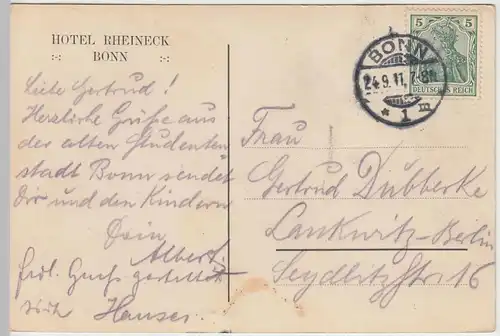 HOTEL RHEINECK
BONN
Liebe Gertrud!
Herzliche Grüße aus
der alten Studenten
stadt Bonn sendet
Dir und den Kindern
Dein
Albert.
frdl. Gruß gestattet
sich Hauser.
BONN
24.9.11. 7-8N
* 1 m
5 5
DEUTSCHES REICH
Frau
Gertrud Dubberke
Lankwitz-Berlin
Seydlitzstr 16